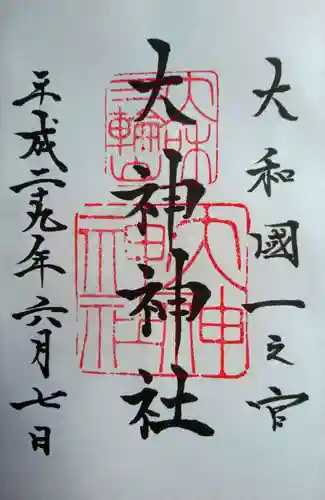 大和國一之宮
大神神社
平成二十九年六月七日
大神神社